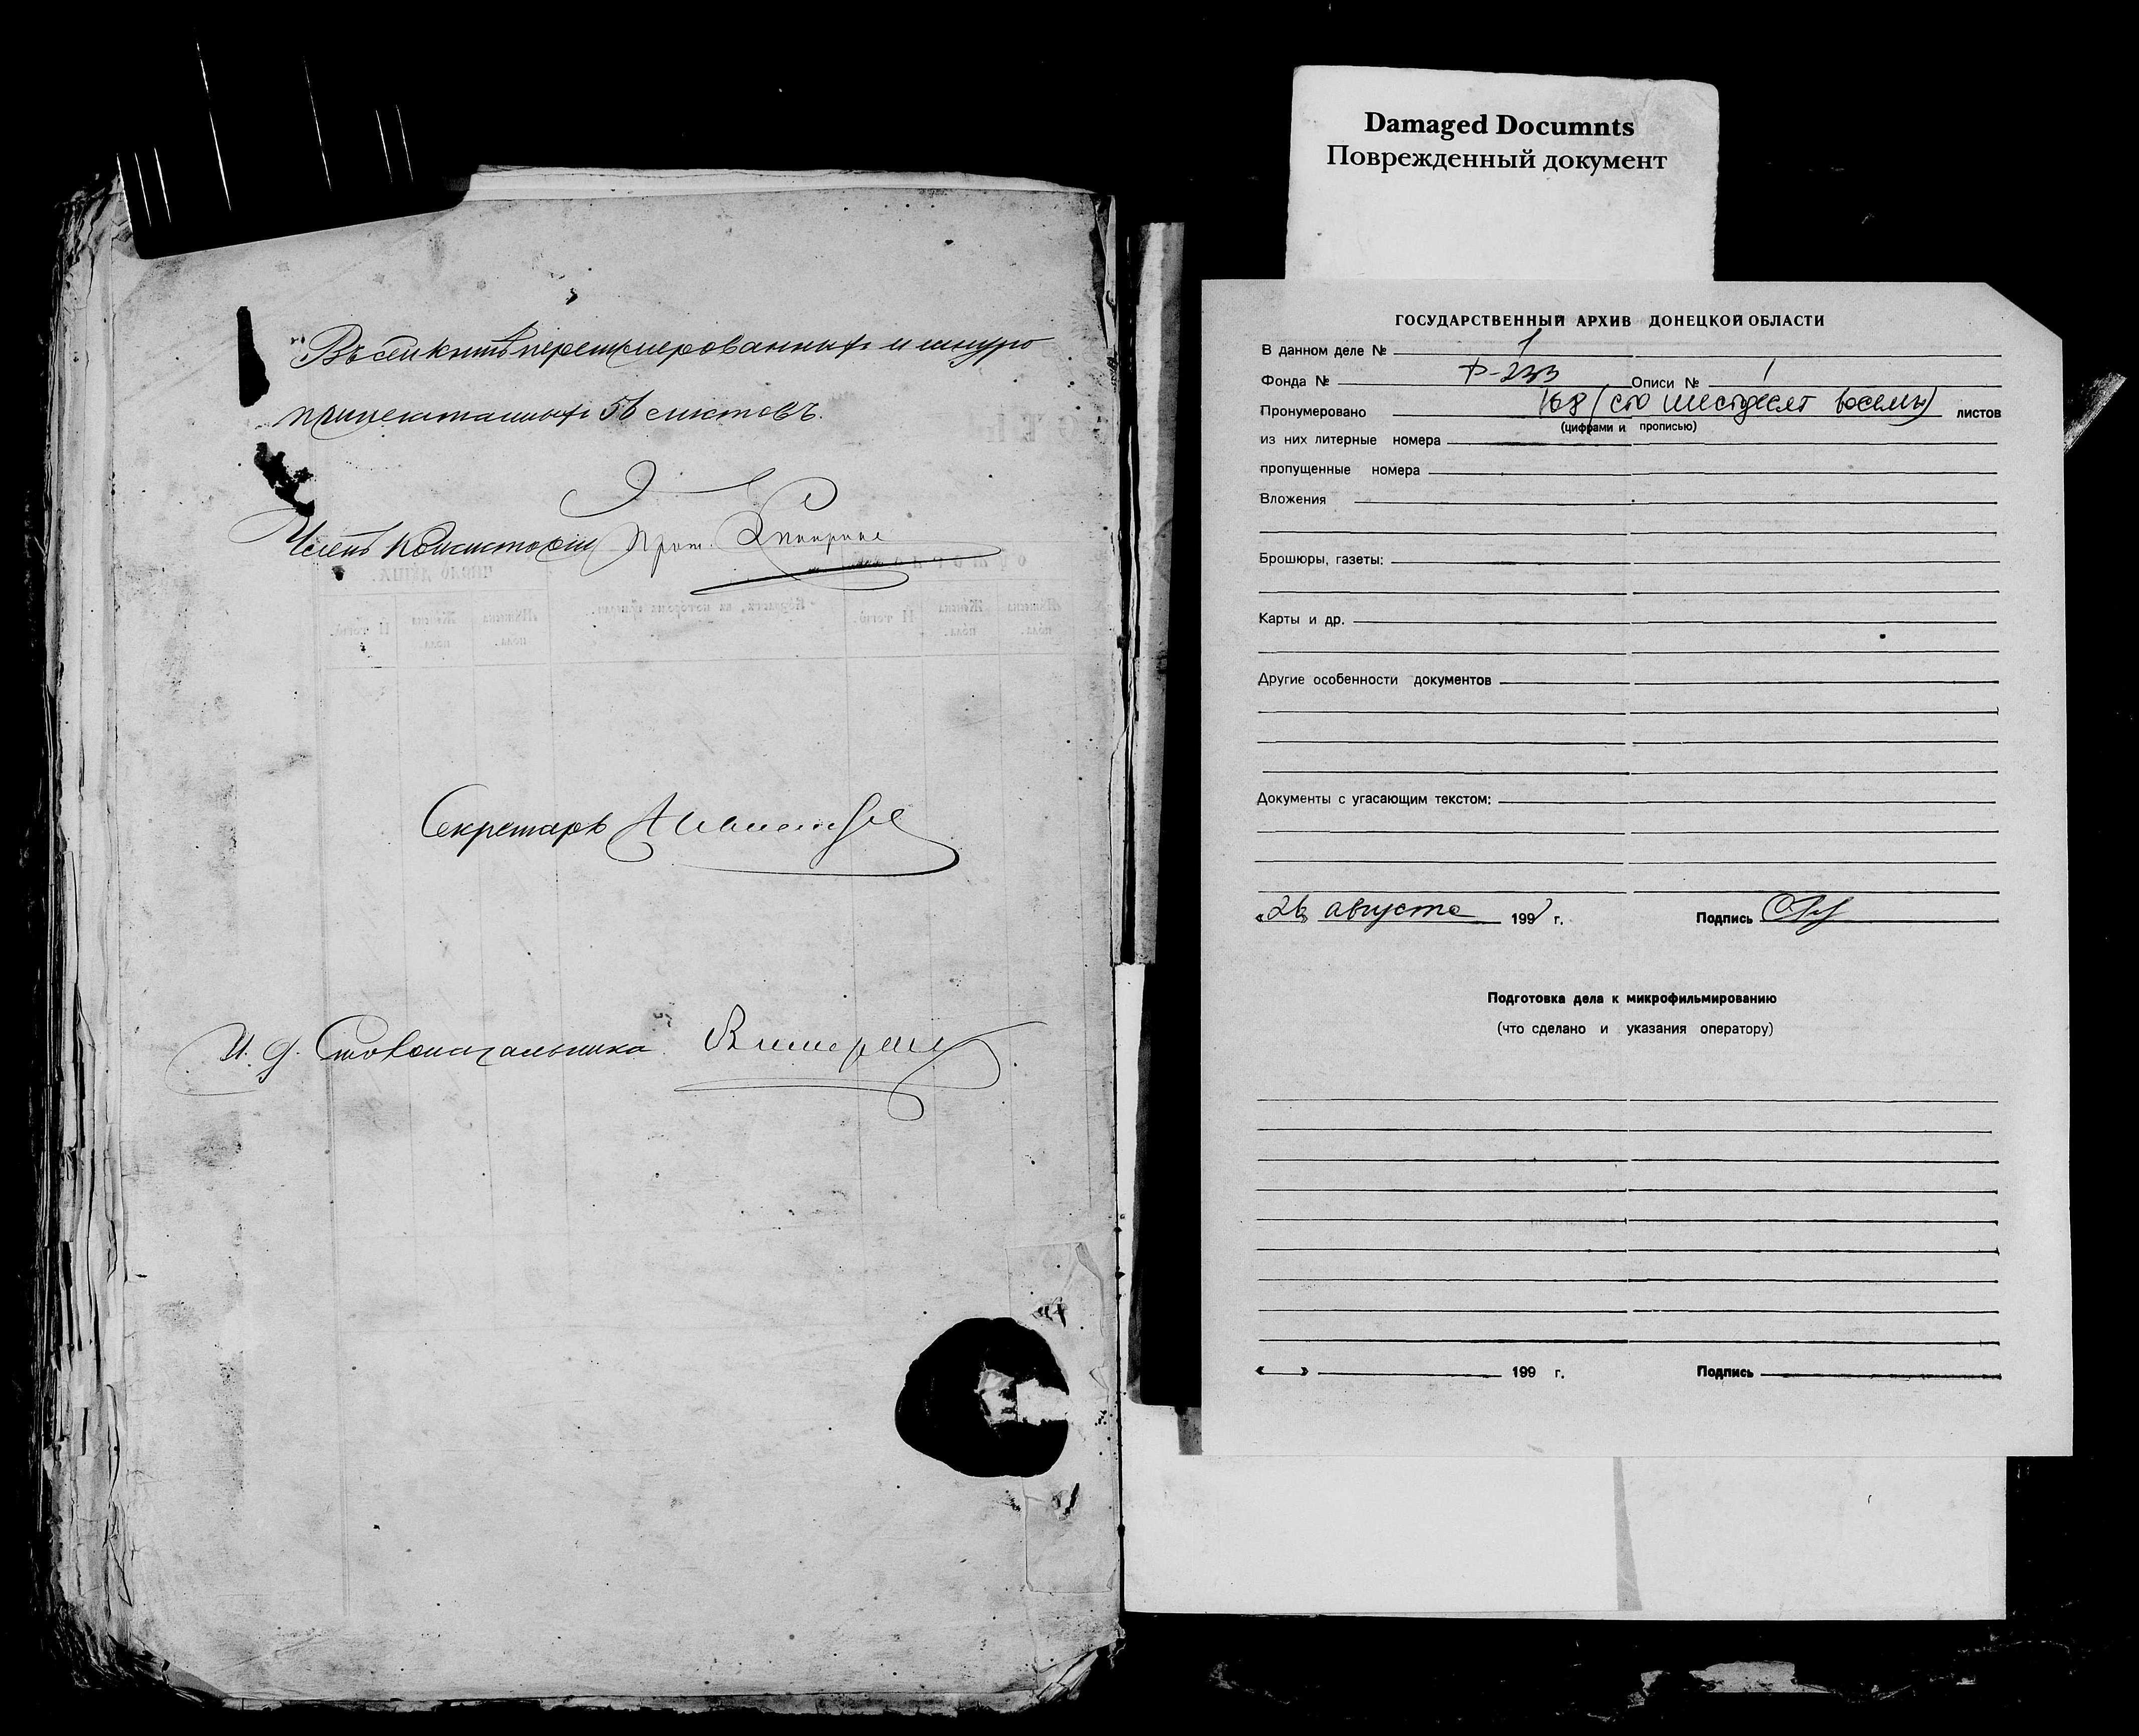 Въ сей книгѣ перенумерованныхъ и шнуро
припечатанныхъ 56 листовъ.
Членъ Консисторіи Прот.
Секретарь
И. д. Столоначальника
Damaged Documnts
Поврежденный документ
ГОСУДАРСТВЕННЫЙ АРХИВ ДОНЕЦКОЙ ОБЛАСТИ
В данном деле № 1
Фонда № Ф-233 Описи № 1
Пронумеровано 168 (сто шестдесят восемь) листов
(цифрами и прописью)
из них литерные номера
пропущенные номера
Вложения
Брошюры, газеты:
Карты и др.
Другие особенности документов
Документы с угасающим текстом:
«26» августа 1997 г. Подпись
Подготовка дела к микрофильмированию
(что сделано и указания оператору)
« » 199 г. Подпись